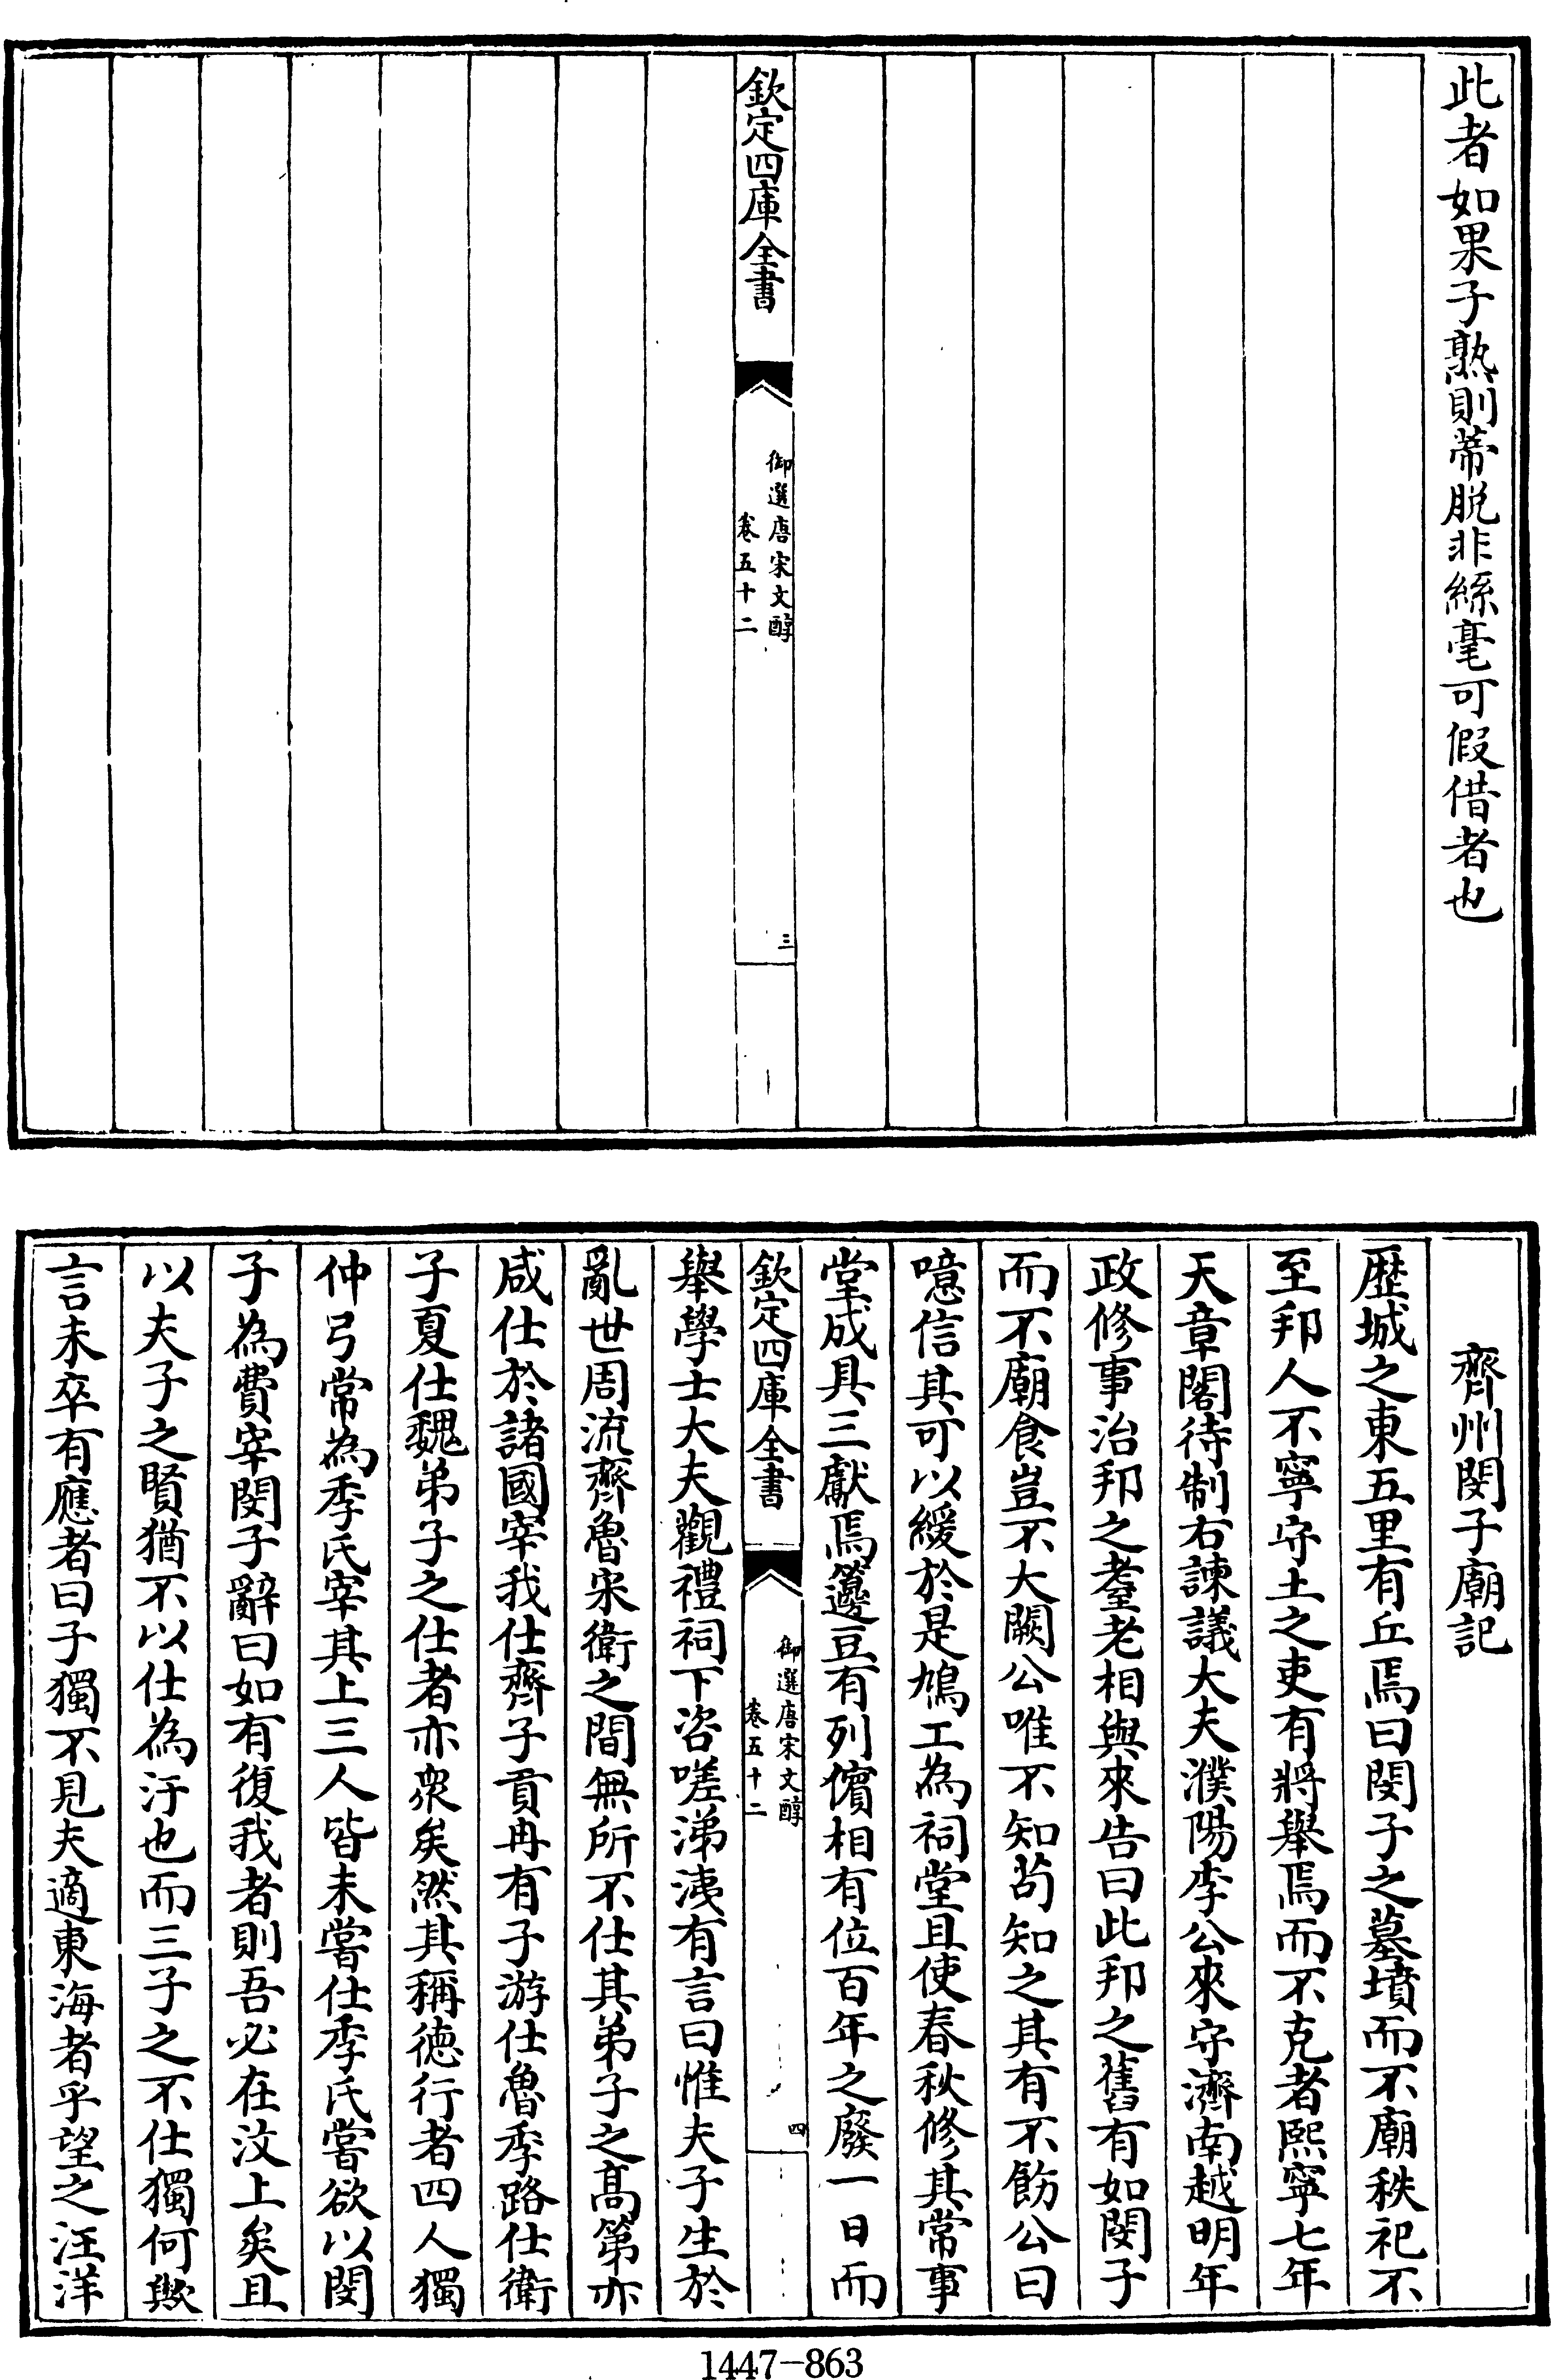 此者如果子熟則蒂脱非絲毫可假借者也
欽定四庫全書
御選唐宋文醇
卷五十二
三
齊州閔子廟記
歴城之東五里有丘焉曰閔子之墓墳而不廟秩祀不
至邦人不寧守土之吏有將舉焉而不克者熙寧七年
天章閣待制右諫議大夫濮陽李公來守濟南越明年
政修事治邦之耋老相與來告曰此邦之舊有如閔子
而不廟食豈不大闕公唯不知茍知之其有不飭公曰
噫信其可以緩於是鳩工為祠堂且使春秋修其常事
堂成具三獻焉籩豆有列儐相有位百年之廢一日而
欽定四庫全書
御選唐宋文醇
卷五十二
四
舉學士大夫觀禮祠下咨嗟涕洟有言曰惟夫子生於
亂世周流齊魯宋衛之間無所不仕其弟子之髙第亦
咸仕於諸國宰我仕齊子貢冉有子游仕魯季路仕衛
子夏仕魏弟子之仕者亦衆矣然其稱德行者四人獨
仲弓常為季氏宰其上三人皆未嘗仕季氏嘗欲以閔
子為費宰閔子辭曰如有復我者則吾必在汶上矣且
以夫子之賢猶不以仕為汙也而三子之不仕獨何歟
言未卒有應者曰子獨不見夫適東海者乎望之汪洋
1447-863